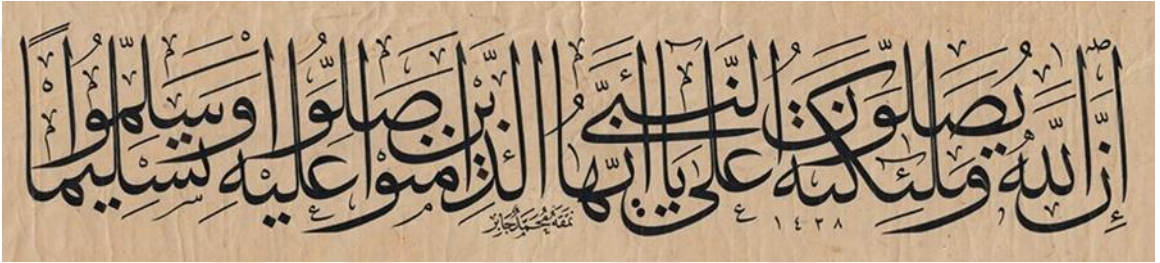 إِنَّ اللَّهَ وَمَلَٰئِكَتَهُ يُصَلُّونَ عَلَى النَّبِيِّ يَا أَيُّهَا الَّذِينَ آمَنُوا صَلُّوا عَلَيْهِ وَسَلِّمُوا تَسْلِيمًا
نمقه محمد جابر ١٤٣٨